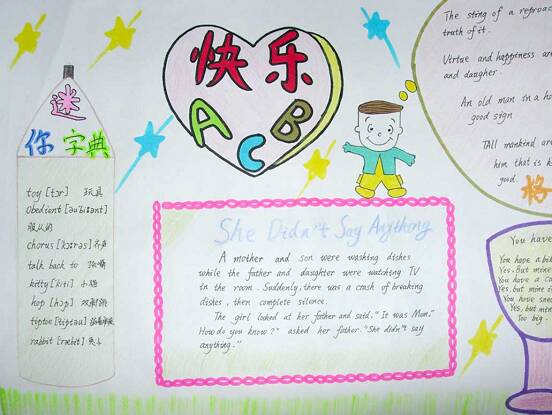 快乐
ACB
迷
你字典
toy [tɔr] 玩具
Obedient [əu'bi:ənt]
服从的
chorus [kɔ:rəs] 齐声
talk back to 顶嘴
kitty [kiti] 小猫
hop [hɔp]
tiptoe [tiptəu]
rabbit [ræbit]
She Didn't Say Anything
A mother and son were washing dishes
while the father and daughter were watching TV
in the room. Suddenly, there was a crash of breaking
dishes, then complete silence.
The girl looked at her father and said, "It was Mom."
How do you know?" asked her father. "She didn't say
anything."
The sting of a reproac
truth of it.
Virtue and happiness ar
and daugher.
An old man in a ho
good sign
TAll mankind are
him that is k
good.
格
You have
You hope a bik
Yes, but mine i
You have a co
Yes, but mine i
You have sne
Yes, but min
Too big.